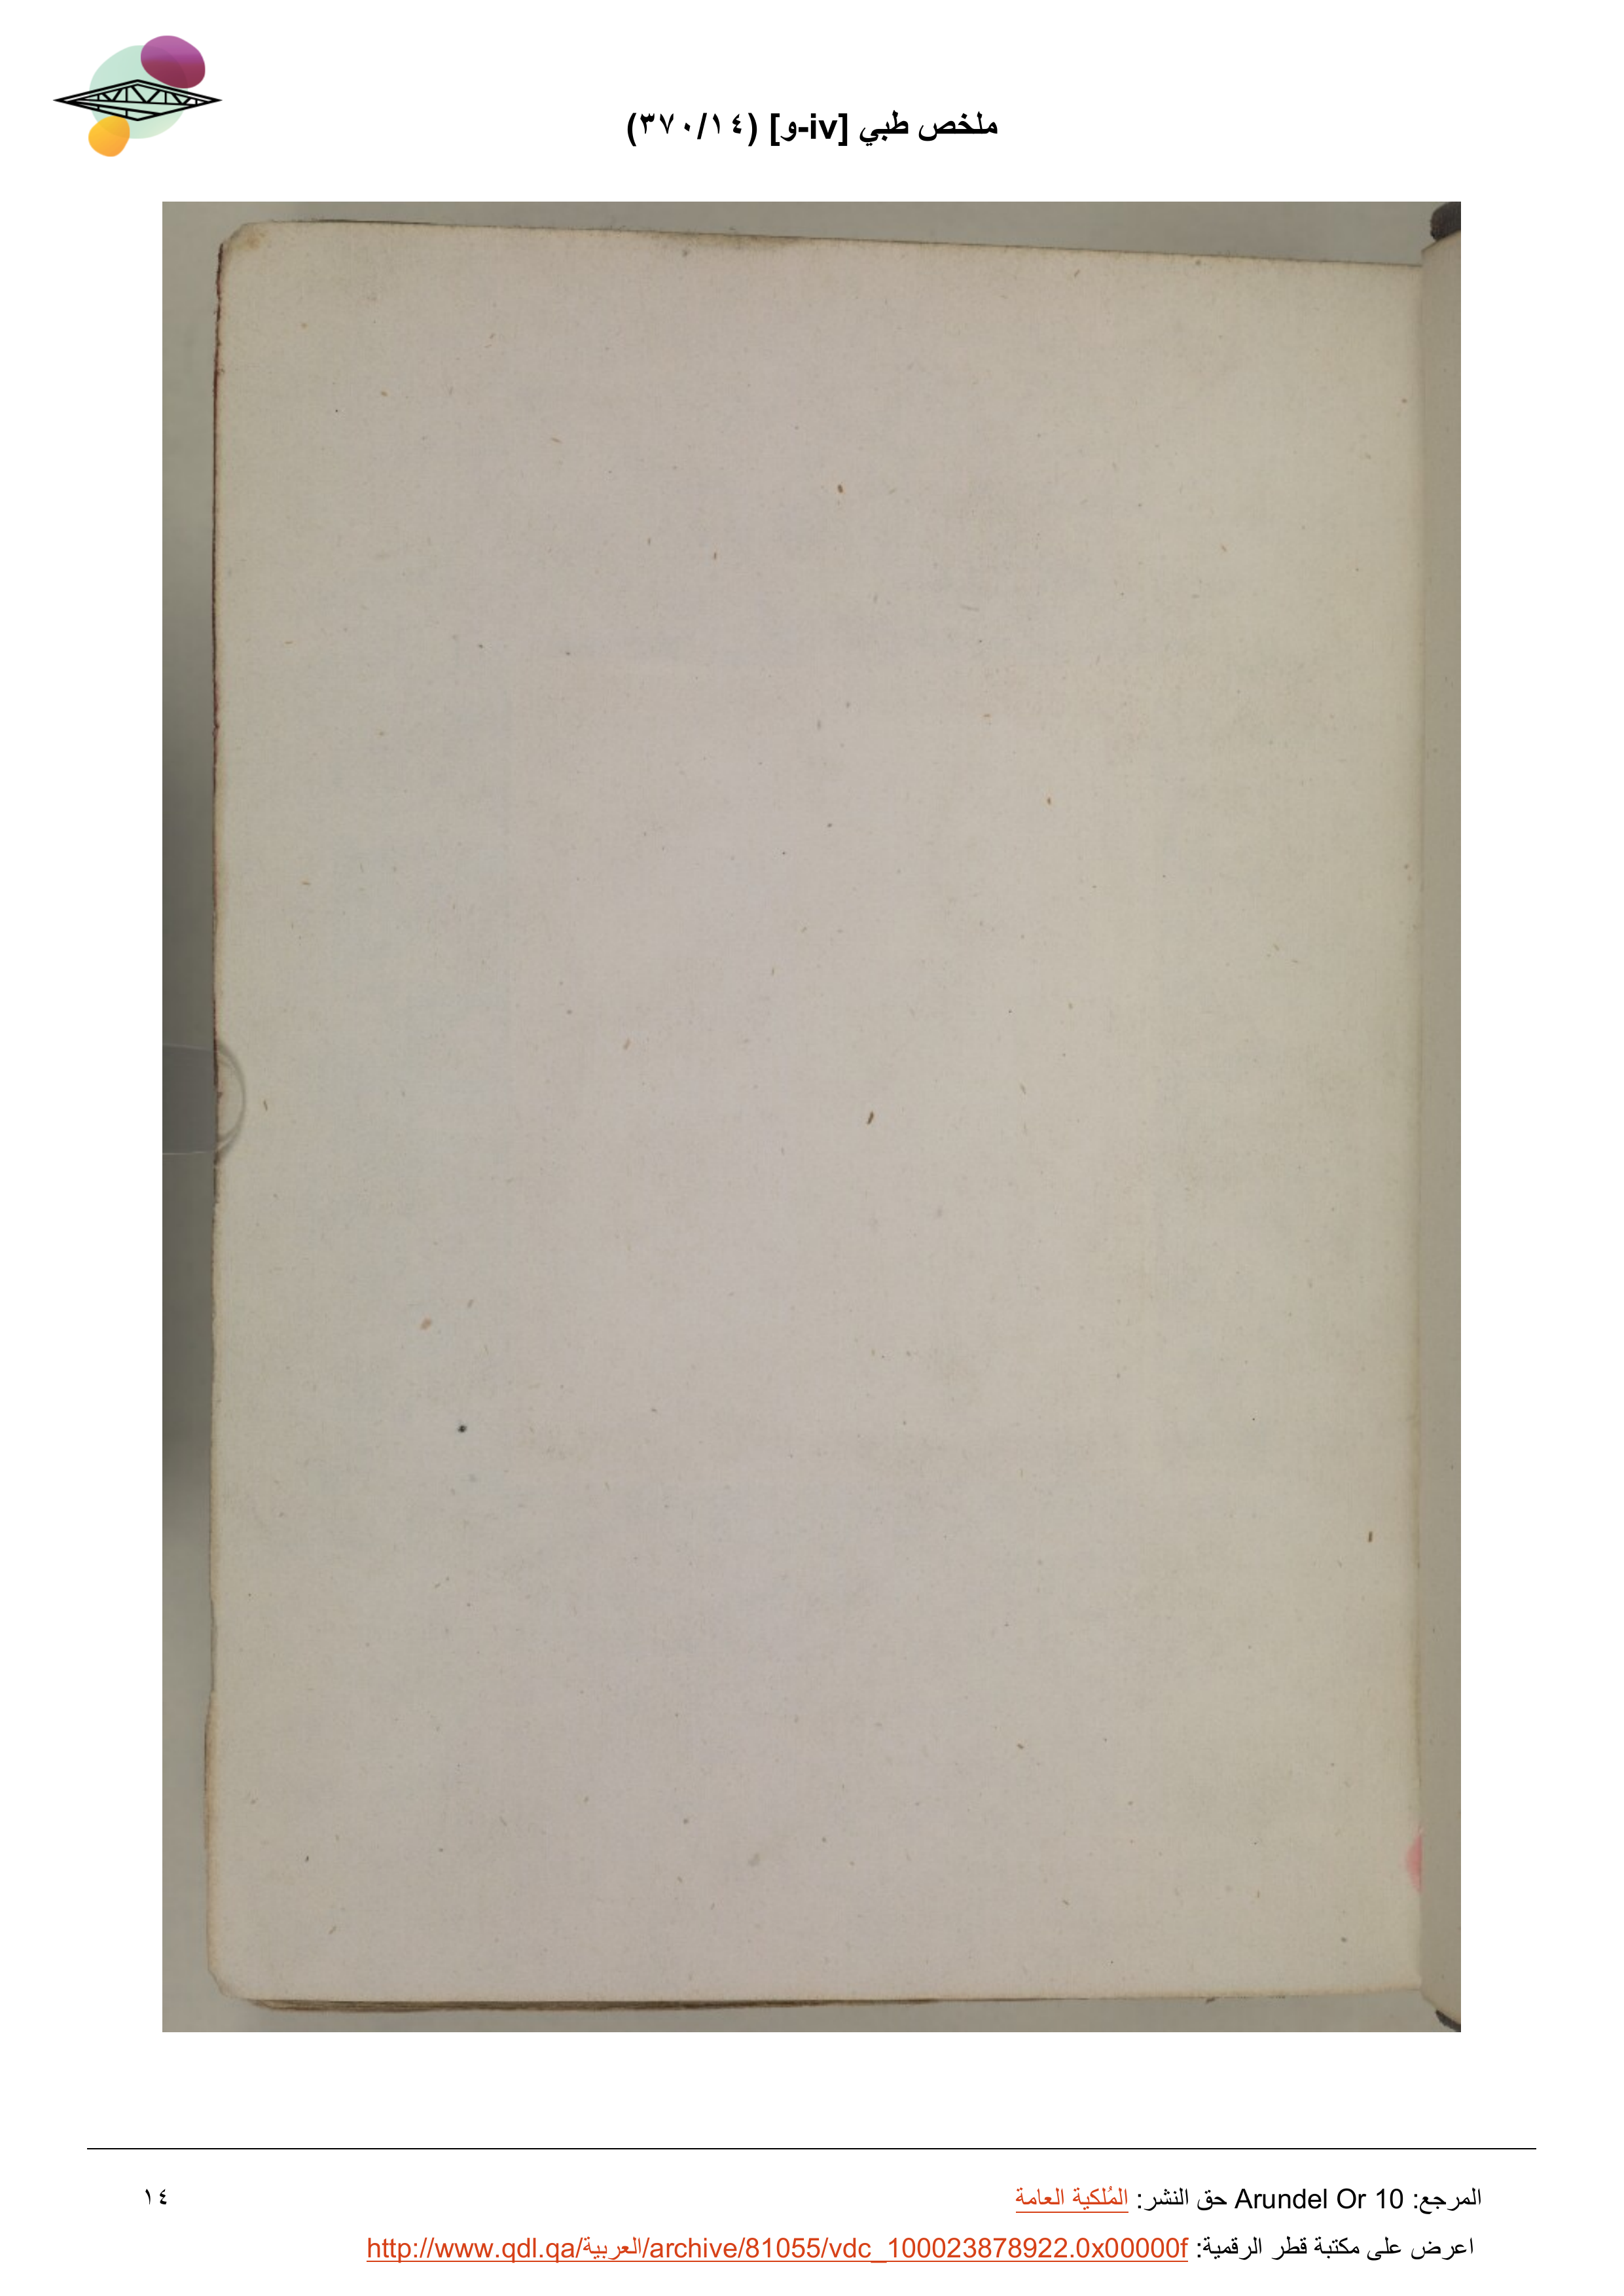 ملخص طبي [iv-و] (٣٧٠/١٤)
المرجع: Arundel Or 10 حق النشر: المُلكية العامة
١٤
اعرض على مكتبة قطر الرقمية: http://www.qdl.qa/العربية/archive/81055/vdc_100023878922.0x00000f